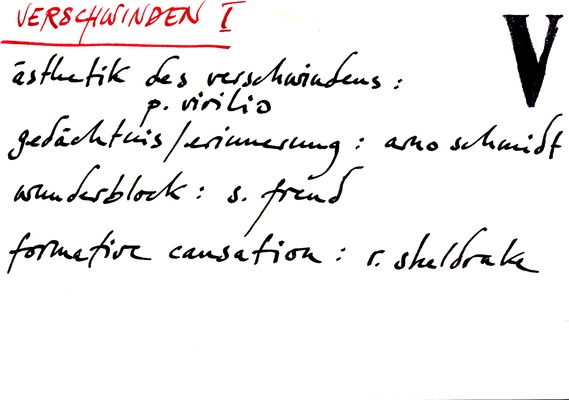 VERSCHWINDEN I
V
ästhetik des verschwindens :
p. virilio
gedächtnis/erinnerung : arno schmidt
wunderblock : s. freud
formative causation : r. sheldrake